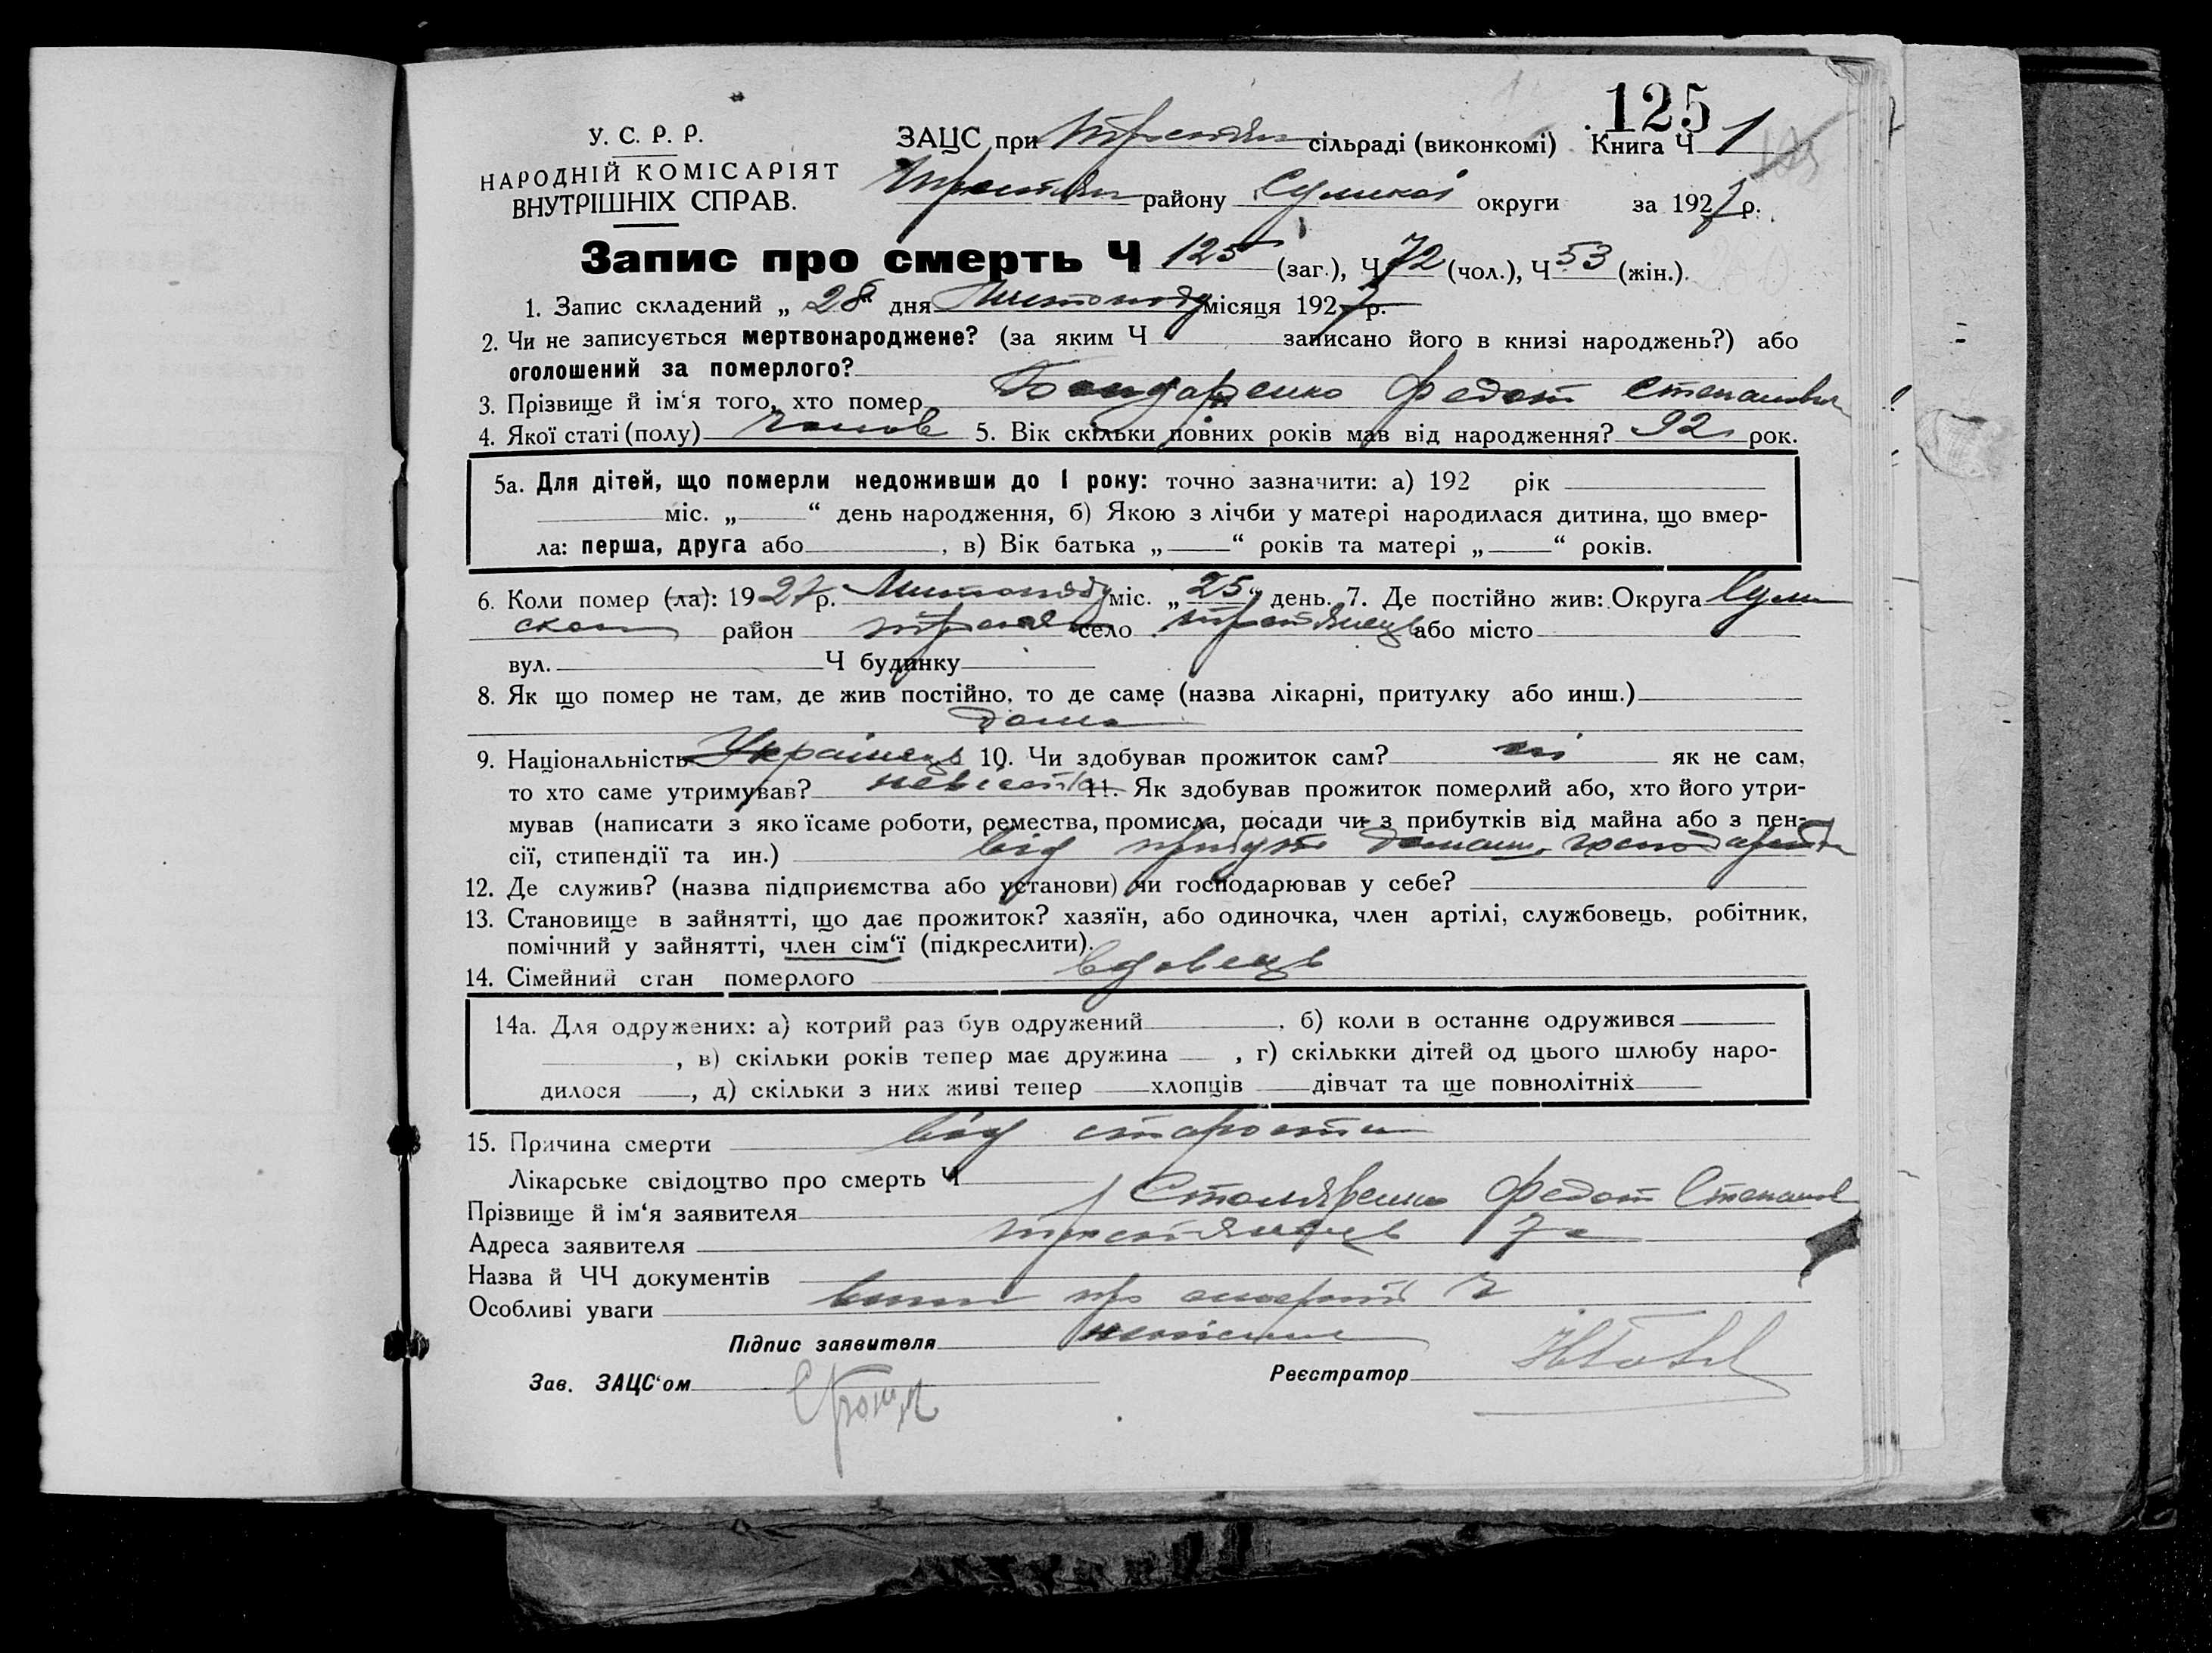 125
У. С. Р. Р.
НАРОДНІЙ КОМІСАРІЯТ
ВНУТРІШНІХ СПРАВ.
ЗАЦС при сільраді (виконкомі) Книга Ч 1
району Сумської округи за 1927 р.
Запис про смерть Ч 125 (заг.), Ч 72 (чол.), Ч 53 (жін.).
1. Запис складений „ 28 “ дня Листопаду місяця 1927 р.
2. Чи не записується мертвонароджене? (за яким Ч записано його в книзі народжень?) або
оголошений за померлого?
3. Прізвище й ім‘я того, хто помер Бондаренко Федот Степанович
4. Якої статі (полу) чолов 5. Вік скільки повних років мав від народження? 92 рок.
5а. Для дітей, що померли недоживши до 1 року: точно зазначити: а) 192 рік
міс. „ “ день народження, б) Якою з лічби у матері народилася дитина, що вмер-
ла: перша, друга або , в) Вік батька „ “ років та матері „ “ років.
6. Коли помер (ла): 1927 р. Листопаду міс. „ 25 “ день. 7. Де постійно жив: Округа Сум
ська район село Тростянець або місто
вул. Ч будинку
8. Як що помер не там, де жив постійно, то де саме (назва лікарні, притулку або инш.)
дома
9. Національність Українець 10. Чи здобував прожиток сам? ні як не сам,
то хто саме утримував? невістка 11. Як здобував прожиток померлий або, хто його утри-
мував (написати з якоїсаме роботи, ремества, промисла, посади чи з прибутків від майна або з пен-
сії, стипендії та ин.) від
12. Де служив? (назва підприємства або установи) чи господарював у себе?
13. Становище в зайнятті, що дає прожиток? хазяїн, або одиночка, член артілі, службовець, робітник,
помічний у зайнятті, член сім‘ї (підкреслити).
14. Сімейний стан померлого вдовець
14а. Для одружених: а) котрий раз був одружений , б) коли в останнє одружився
, в) скільки років тепер має дружина , г) скількки дітей од цього шлюбу наро-
дилося , д) скільки з них живі тепер хлопців дівчат та ще повнолітніх
15. Причина смерти від старости
Лікарське свідоцтво про смерть Ч
Прізвище й ім‘я заявителя Столяренко Федот Степанов
Адреса заявителя Тростянець
Назва й ЧЧ документів
Особливі уваги про
Підпис заявителя
Зав. ЗАЦС‘ом
Реєстратор